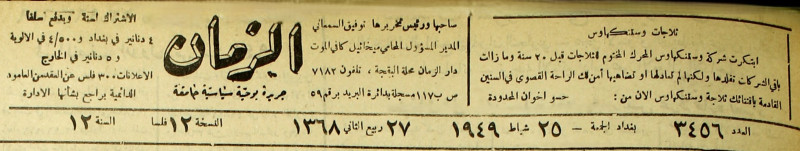 ثلاجات وستنكهاوس
ابتكرت شركة وستنكهاوس المحرك المختوم للثلاجات قبل ٢٠ سنة وما زالت
باقي الشركات تقلدها ولكنها لم تماثلها او تضاهيها أمن لك الراحة القصوى في السنين
القادمة باقتنائك ثلاجة وستنكهاوس الآن من : حسو اخوان المحدودة
صاحبها ورئيس تحريرها توفيق السمعاني
المدير المسؤول المحامي ميخائيل
دار الزمان محلة البقچة ، تلفون ٧١٨٢
ص ب ١١٧ مسجلة بدائرة البريد برقم ٥٩
الزمان
جريدة يومية سياسية جامعة
الاشتراك لسنة ويدفع سلفا
٤ دنانير في بغداد و ٤/٥٠٠ في الالوية
و ٥ دنانير في الخارج
الاعلانات ٣٠٠ فلس عن العقدين العامود
الدائمية يراجع بشأنها الادارة
العدد ٣٤٥٦ بغداد الجمعة – ٢٥ شباط ١٩٤٩ ٢٧ ربيع الثاني ١٣٦٨ النسخة ١٢ فلسا السنة ١٢